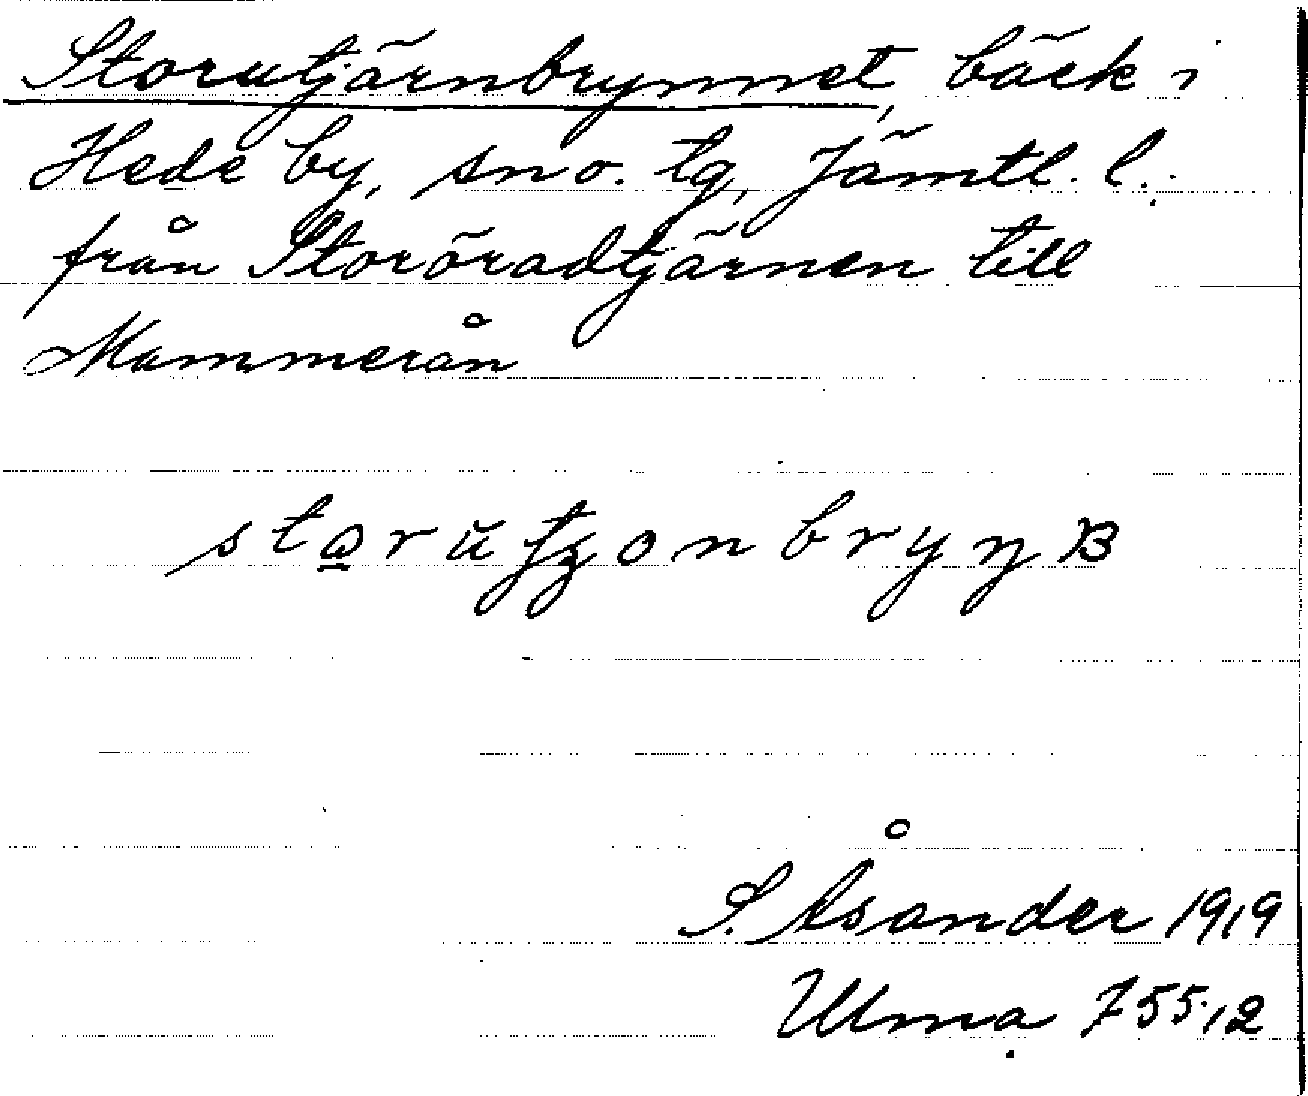 Storutjärnbrynnet, bäck i
Hede by, sn o. tg, Jämtl. l.
från Stororadtjärnen till
Mammerån
S. Åsander 1919
Ulma 755:12